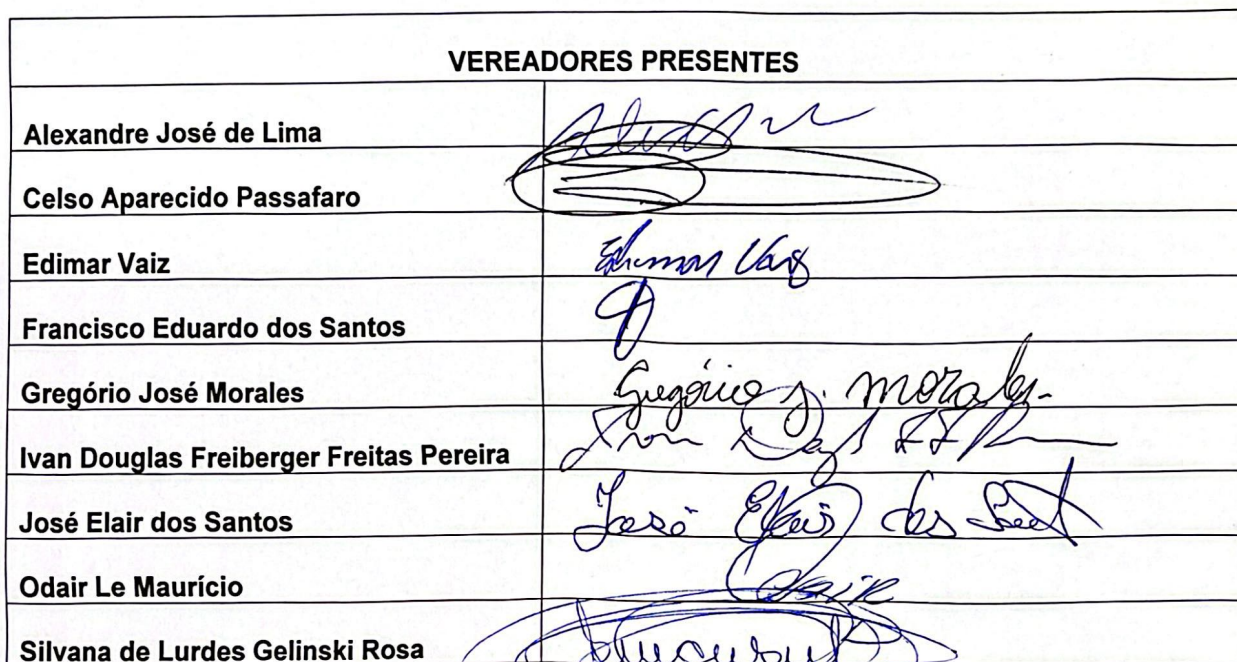 VEREADORES PRESENTES
Alexandre José de Lima
Celso Aparecido Passafaro
Edimar Vaiz Edimar Vaiz
Francisco Eduardo dos Santos
Gregório José Morales Gregório J. Morales
Ivan Douglas Freiberger Freitas Pereira Ivan
José Elair dos Santos José Elair dos
Odair Le Maurício Odair
Silvana de Lurdes Gelinski Rosa